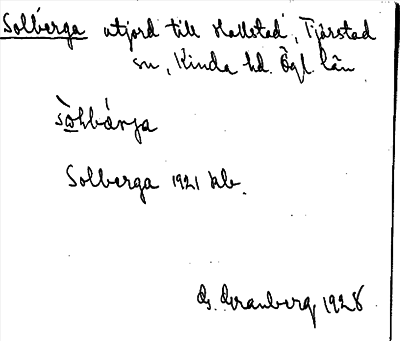 Solberga utjord till Hallstad, Tjärstad
sn, Kinda hd. Ögl. län
sòlbárja
Solberga 1921 kb.
G. Granberg 1928